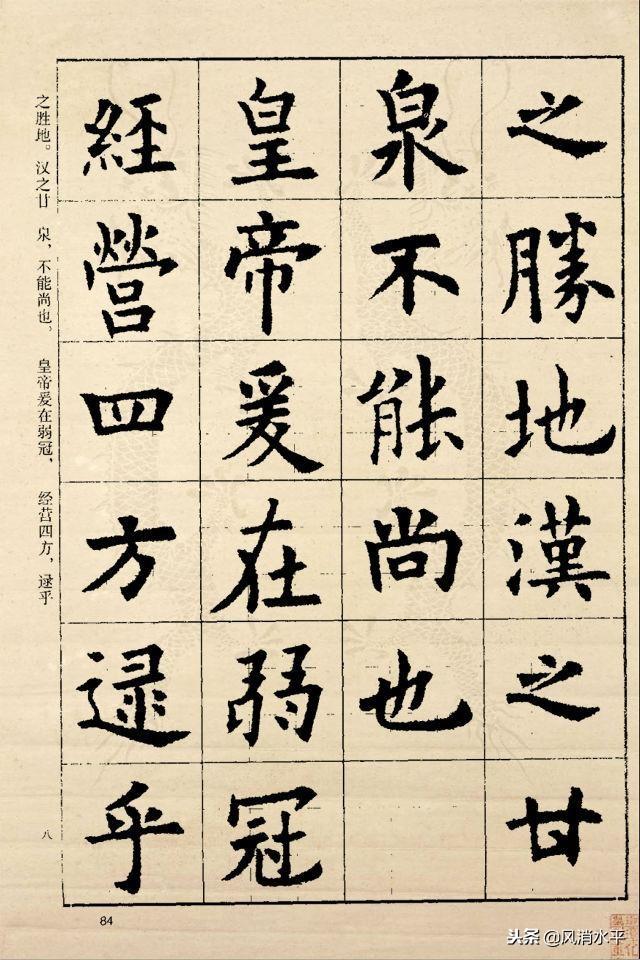 之勝地漢之甘
泉不能尚也
皇帝爰在弱冠
經營四方逯乎
之胜地。汉之甘 泉，不能尚也。 皇帝爰在弱冠， 经营四方，逯乎
八
84
头条 @风消水平